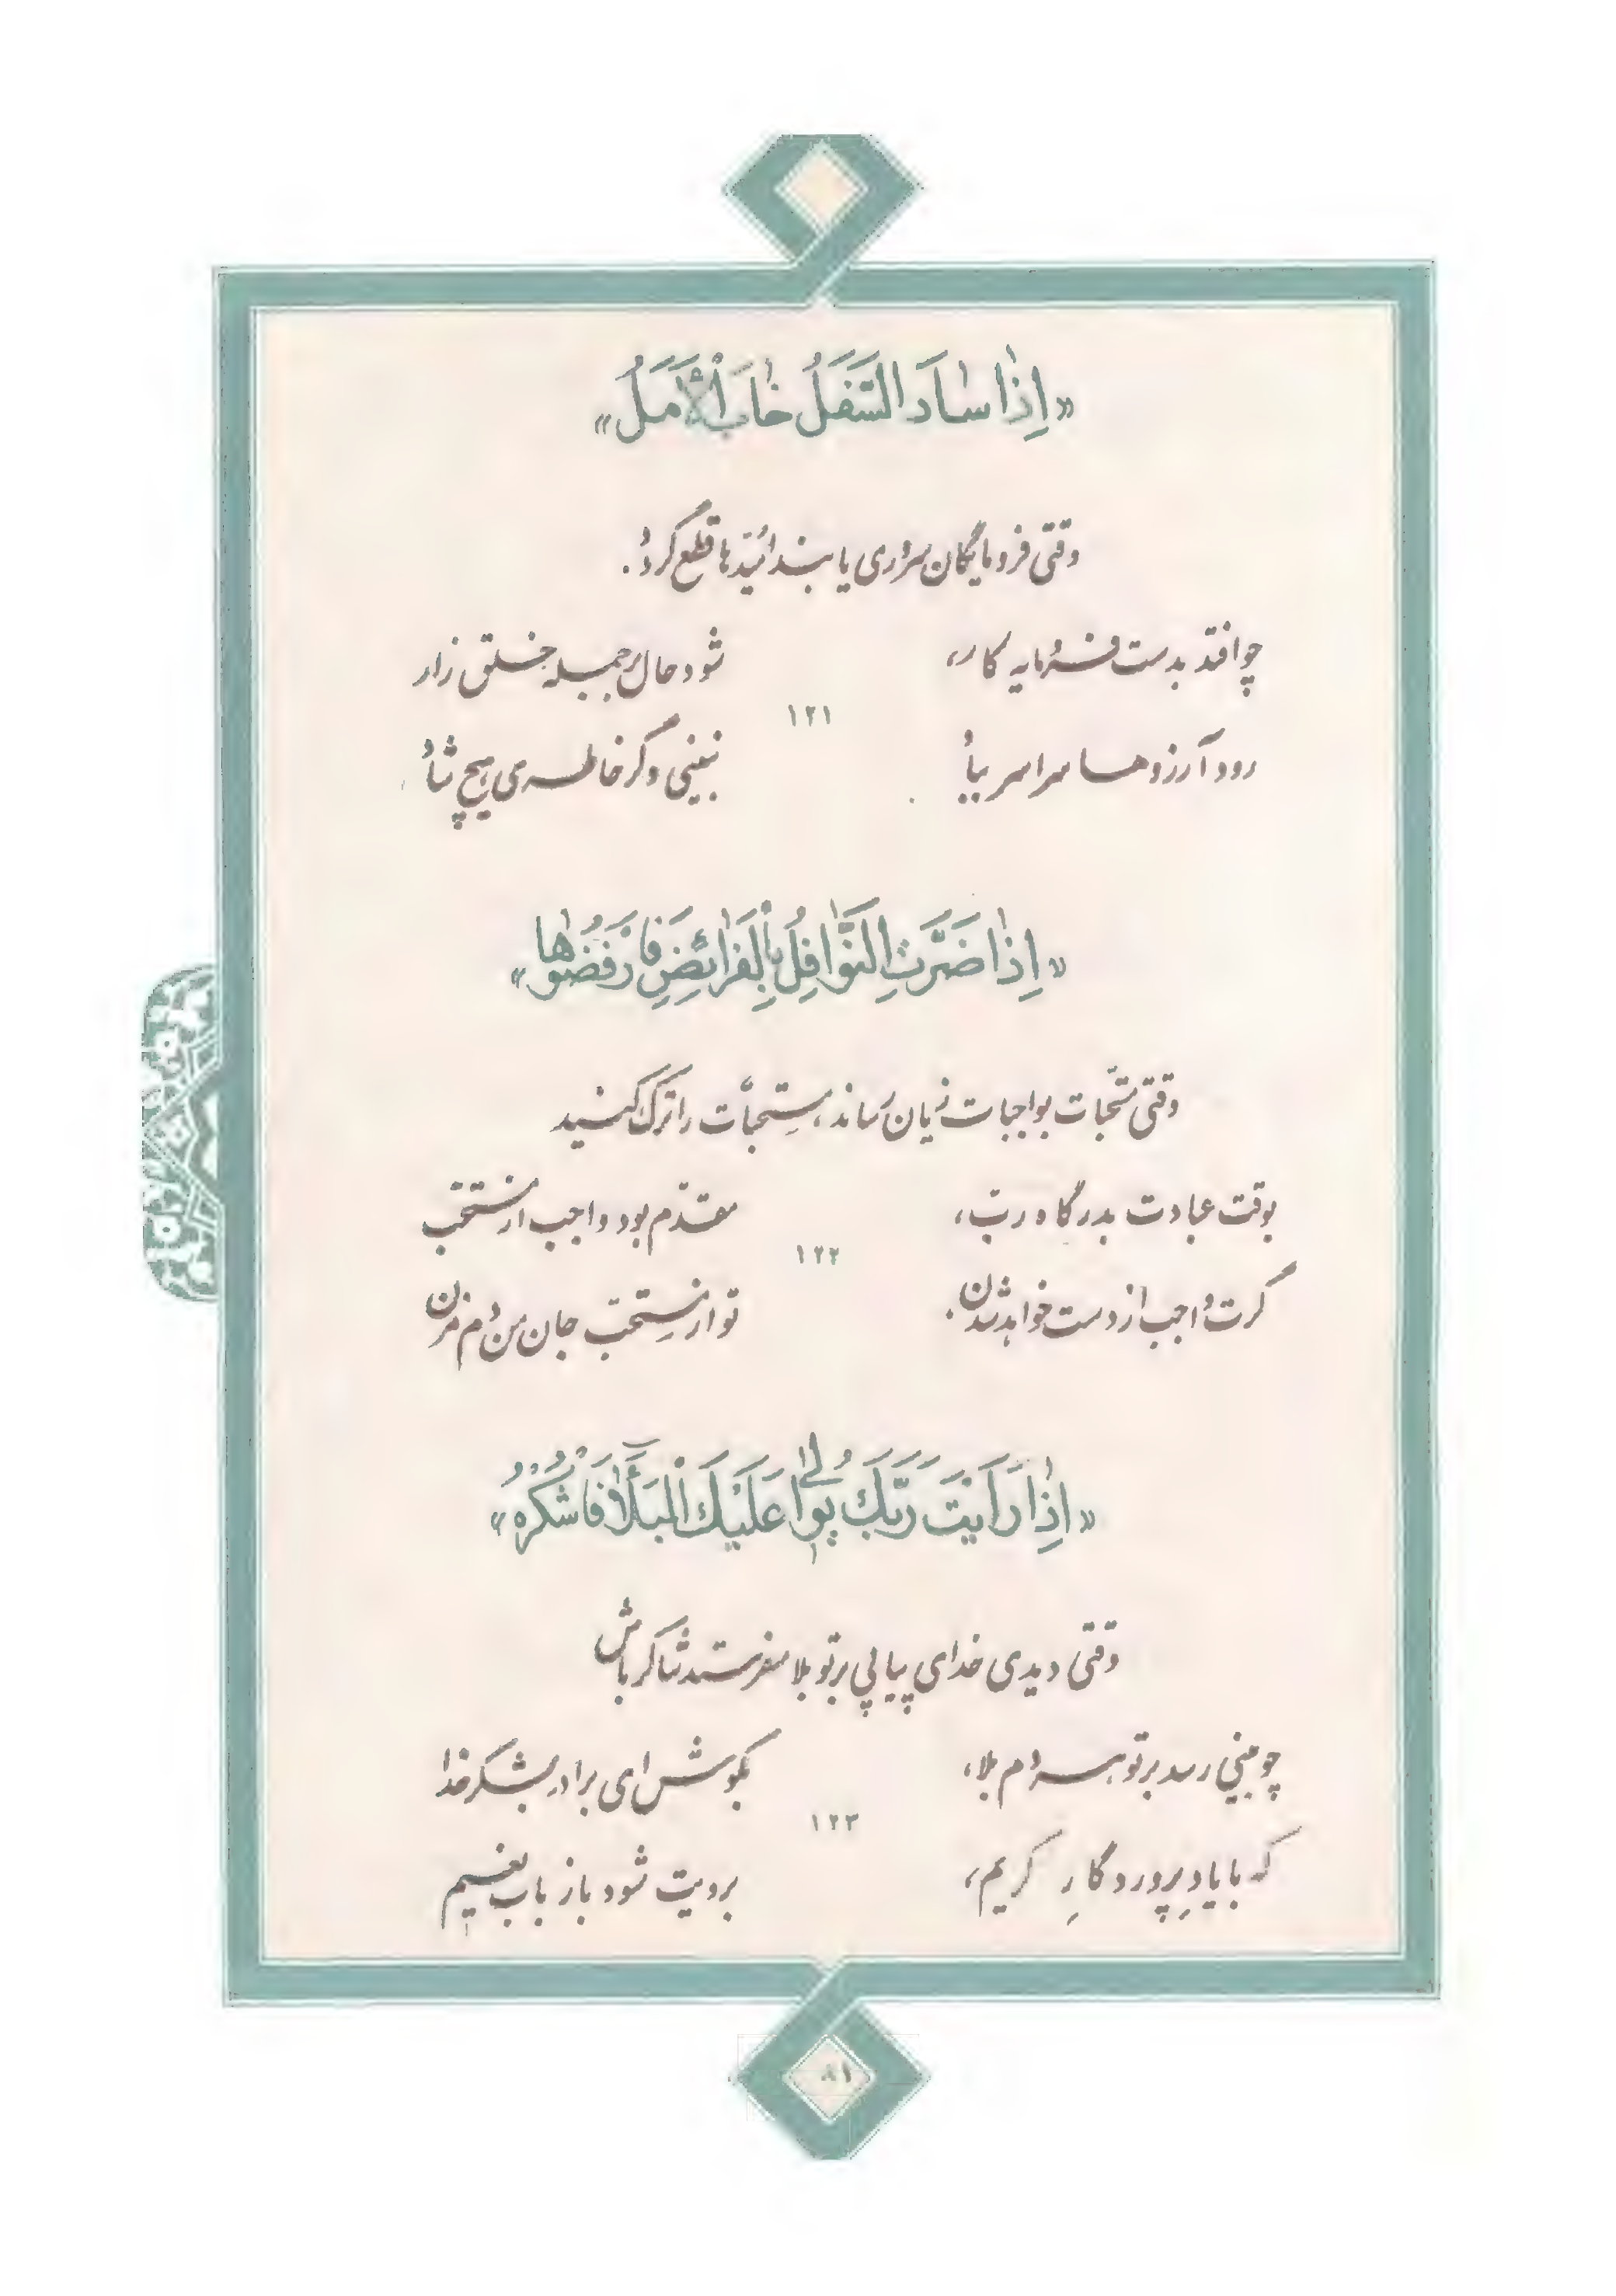 «اِذٰا سٰادَ السَّفَلُ خٰابَ الْأَمَلُ»
وقتی فرومایگان سروری یابند امّیدها قطع گردد.
چو افتد بدست فرومایه کار، شود حال جمله خلق زار
۱۲۱
رود آرزوها سراسر بباد نبینی دگر خاطری هیچ شاد
«اِذٰا ضَرَّتِ النَّوٰافِلُ بِالْفَرٰائِضِ فَارْفَضُوهٰا»
وقتی مستحبّات بواجبات زیان رساند، مستحبّات را ترک کنید
بوقت عبادت بدرگاه ربّ، مقدّم بود واجب از مستحّب
۱۲۲
گرت واجب از دست خواهد شدن. تو از مستحّب جان من دم مزن
«اِذٰا رَاَیْتَ رَبَّکَ یُوٰالی عَلَیْکَ الْبَلَاءَ فَاشْکُرْهُ»
وقتی دیدی خدای پیاپی بر تو بلا میفرستد شاکر باش
چو بینی رسد بر تو هر دم بلا، بکوش ای برادر بشکر خدا
۱۲۳
که با یادِ پروردگارِ کریم، برویت شود باز باب نعیم
۸۱